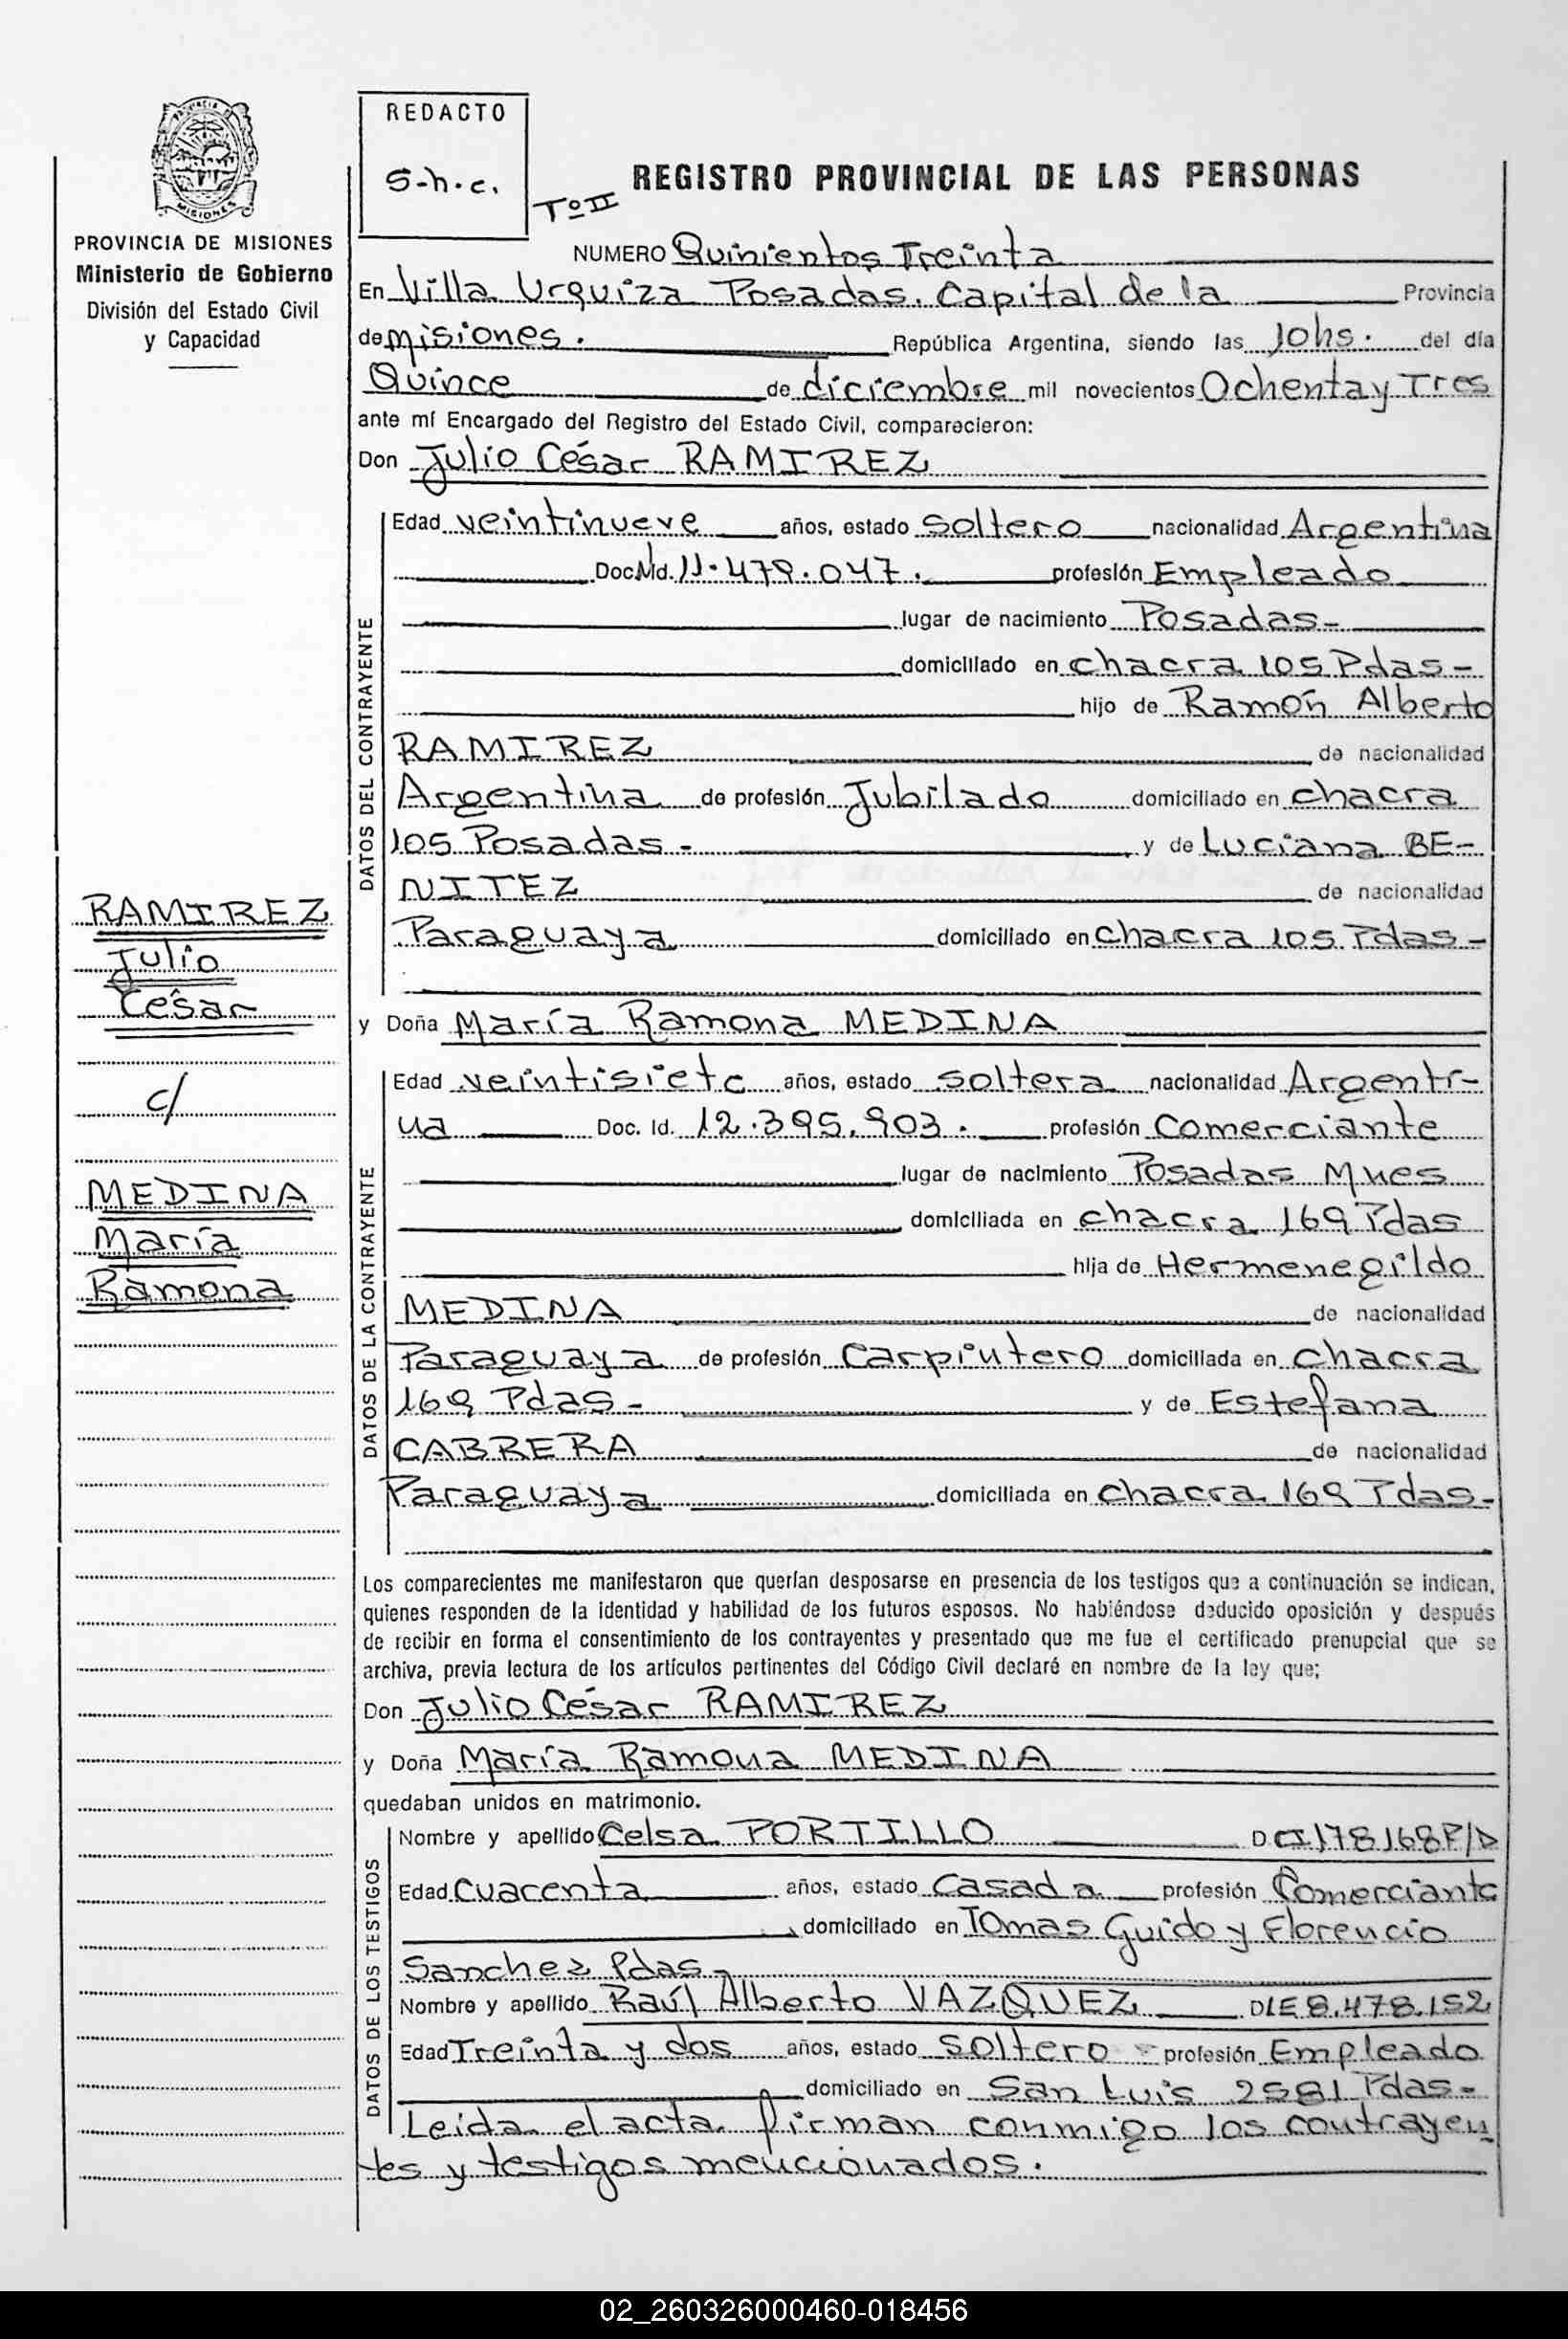 REDACTO
S-h.c.
PROVINCIA DE MISIONES
Ministerio de Gobierno
División del Estado Civil
y Capacidad
RAMIREZ
Julio
César
c/
MEDINA
María
Ramona
REGISTRO PROVINCIAL DE LAS PERSONAS
Tº II
NUMERO Quinientos Treinta
En Villa Urquiza Posadas. Capital de la Provincia
de misiones. República Argentina, siendo las 10hs. del día
Quince de diciembre mil novecientos Ochenta y Tres
ante mí Encargado del Registro del Estado Civil, comparecieron:
Don Julio César RAMIREZ
DATOS DEL CONTRAYENTE
Edad veintinueve años, estado soltero nacionalidad Argentina
Doc. Id. 11.479.047. profesión Empleado
lugar de nacimiento Posadas-
domiciliado en chacra 105 Pdas-
hijo de Ramón Alberto
RAMIREZ de nacionalidad
Argentina de profesión Jubilado domiciliado en chacra
105 Posadas - y de Luciana BE-
NITEZ de nacionalidad
Paraguaya domiciliado en chacra 105 Pdas-
y Doña María Ramona MEDINA
DATOS DE LA CONTRAYENTE
Edad veintisiete años, estado soltera nacionalidad Argenti-
na Doc. Id. 12.395.903. profesión Comerciante
lugar de nacimiento Posadas Mnes
domiciliada en chacra 169 Pdas
hija de Hermenegildo
MEDINA de nacionalidad
Paraguaya de profesión Carpintero domiciliada en chacra
169 Pdas- y de Estefana
CABRERA de nacionalidad
Paraguaya domiciliada en chacra 169 Pdas-
Los comparecientes me manifestaron que querían desposarse en presencia de los testigos que a continuación se indican,
quienes responden de la identidad y habilidad de los futuros esposos. No habiéndose deducido oposición y después
de recibir en forma el consentimiento de los contrayentes y presentado que me fue el certificado prenupcial que se
archiva, previa lectura de los artículos pertinentes del Código Civil declaré en nombre de la ley que;
Don Julio César RAMIREZ
y Doña María Ramona MEDINA
quedaban unidos en matrimonio.
DATOS DE LOS TESTIGOS
Nombre y apellido Celsa PORTILLO D CI 178168 P/D
Edad Cuarenta años, estado Casada profesión Comerciante
domiciliado en Tomas Guido y Florencio
Sanchez Pdas-
Nombre y apellido Raúl Alberto VAZQUEZ DLE 8.478.152
Edad Treinta y dos años, estado soltero - profesión Empleado
domiciliado en San Luis 2581 Pdas-
Leida el acta firman conmigo los contrayen
tes y testigos mencionados.
02_260326000460-018456